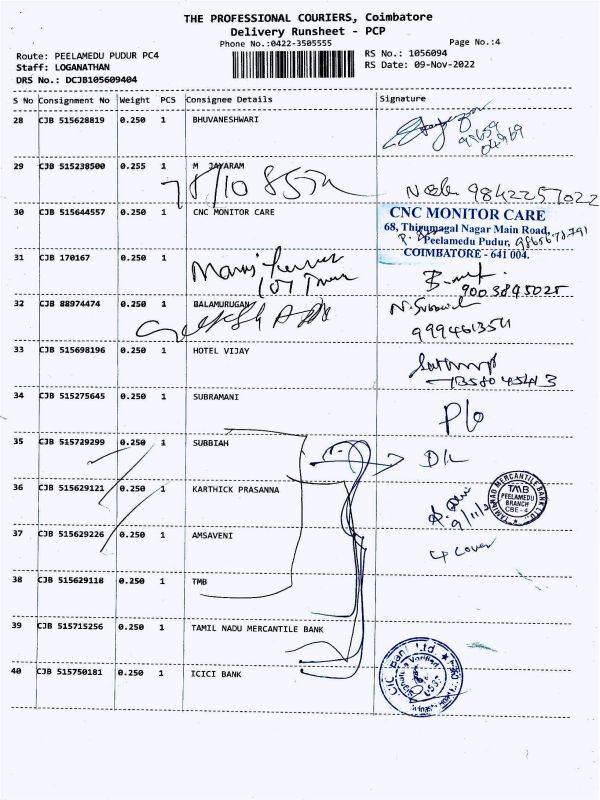 THE PROFESSIONAL COURIERS, Coimbatore
Delivery Runsheet - PCP
Phone No.:0422-3505555
Page No.:4
Route: PEELAMEDU PUDUR PC4
RS No.: 1056094
Staff: LOGANATHAN
RS Date: 09-Nov-2022
DRS No.: DCJB105609404
S No Consignment No Weight PCS Consignee Details Signature
28 CJB 515628819 0.250 1 BHUVANESHWARI
29 CJB 515238500 0.255 1 M JAYARAM
9842257022
30 CJB 515644557 0.250 1 CNC MONITOR CARE
CNC MONITOR CARE
68, Thirumagal Nagar Main Road,
Peelamedu Pudur,
COIMBATORE - 641 004.
31 CJB 170167 0.250 1
9003895025
32 CJB 88974474 0.250 1 BALAMURUGAN
33 CJB 515698196 0.250 1 HOTEL VIJAY
34 CJB 515275645 0.250 1 SUBRAMANI
P/o
35 CJB 515729299 0.250 1 SUBBIAH
D/L
36 CJB 515629121 0.250 1 KARTHICK PRASANNA
TAMILNAD MERCANTILE BANK LTD.
TMB
PEELAMEDU
BRANCH
CBE - 4
37 CJB 515629226 0.250 1 AMSAVENI
cover
38 CJB 515629118 0.250 1 TMB
39 CJB 515715256 0.250 1 TAMIL NADU MERCANTILE BANK
40 CJB 515750181 0.250 1 ICICI BANK